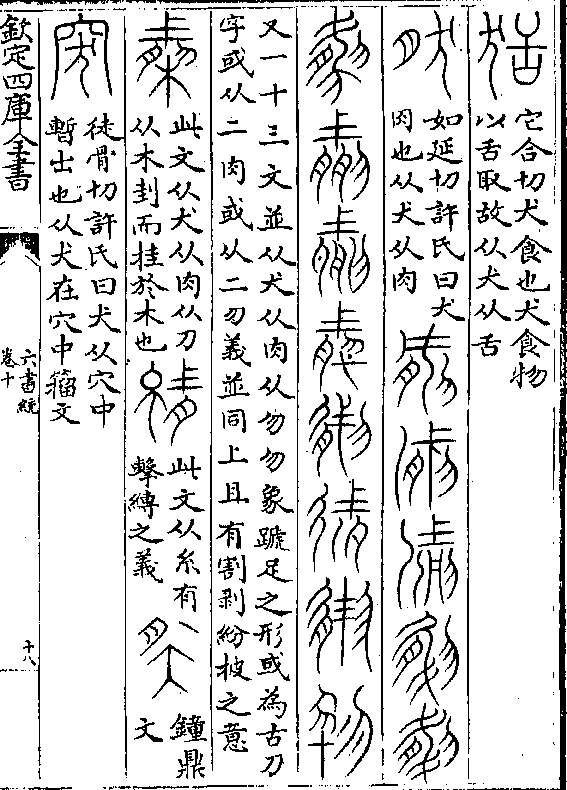 它合切犬食也犬食物
以舌取故从犬从舌
如延切許氏曰犬
肉也从犬从肉
又一十三文並从犬从肉从勿勿象蹏足之形或為古刀
字或从二肉或从二刀義並同上且有割剥紛披之意
此文从犬从肉从刀
从木封而挂於木也
此文从糸有
擊縛之義
鐘鼎
文
徒骨切許氏曰犬从穴中
暫出也从犬在穴中籀文
欽定四庫全書
六書統
卷十
十八